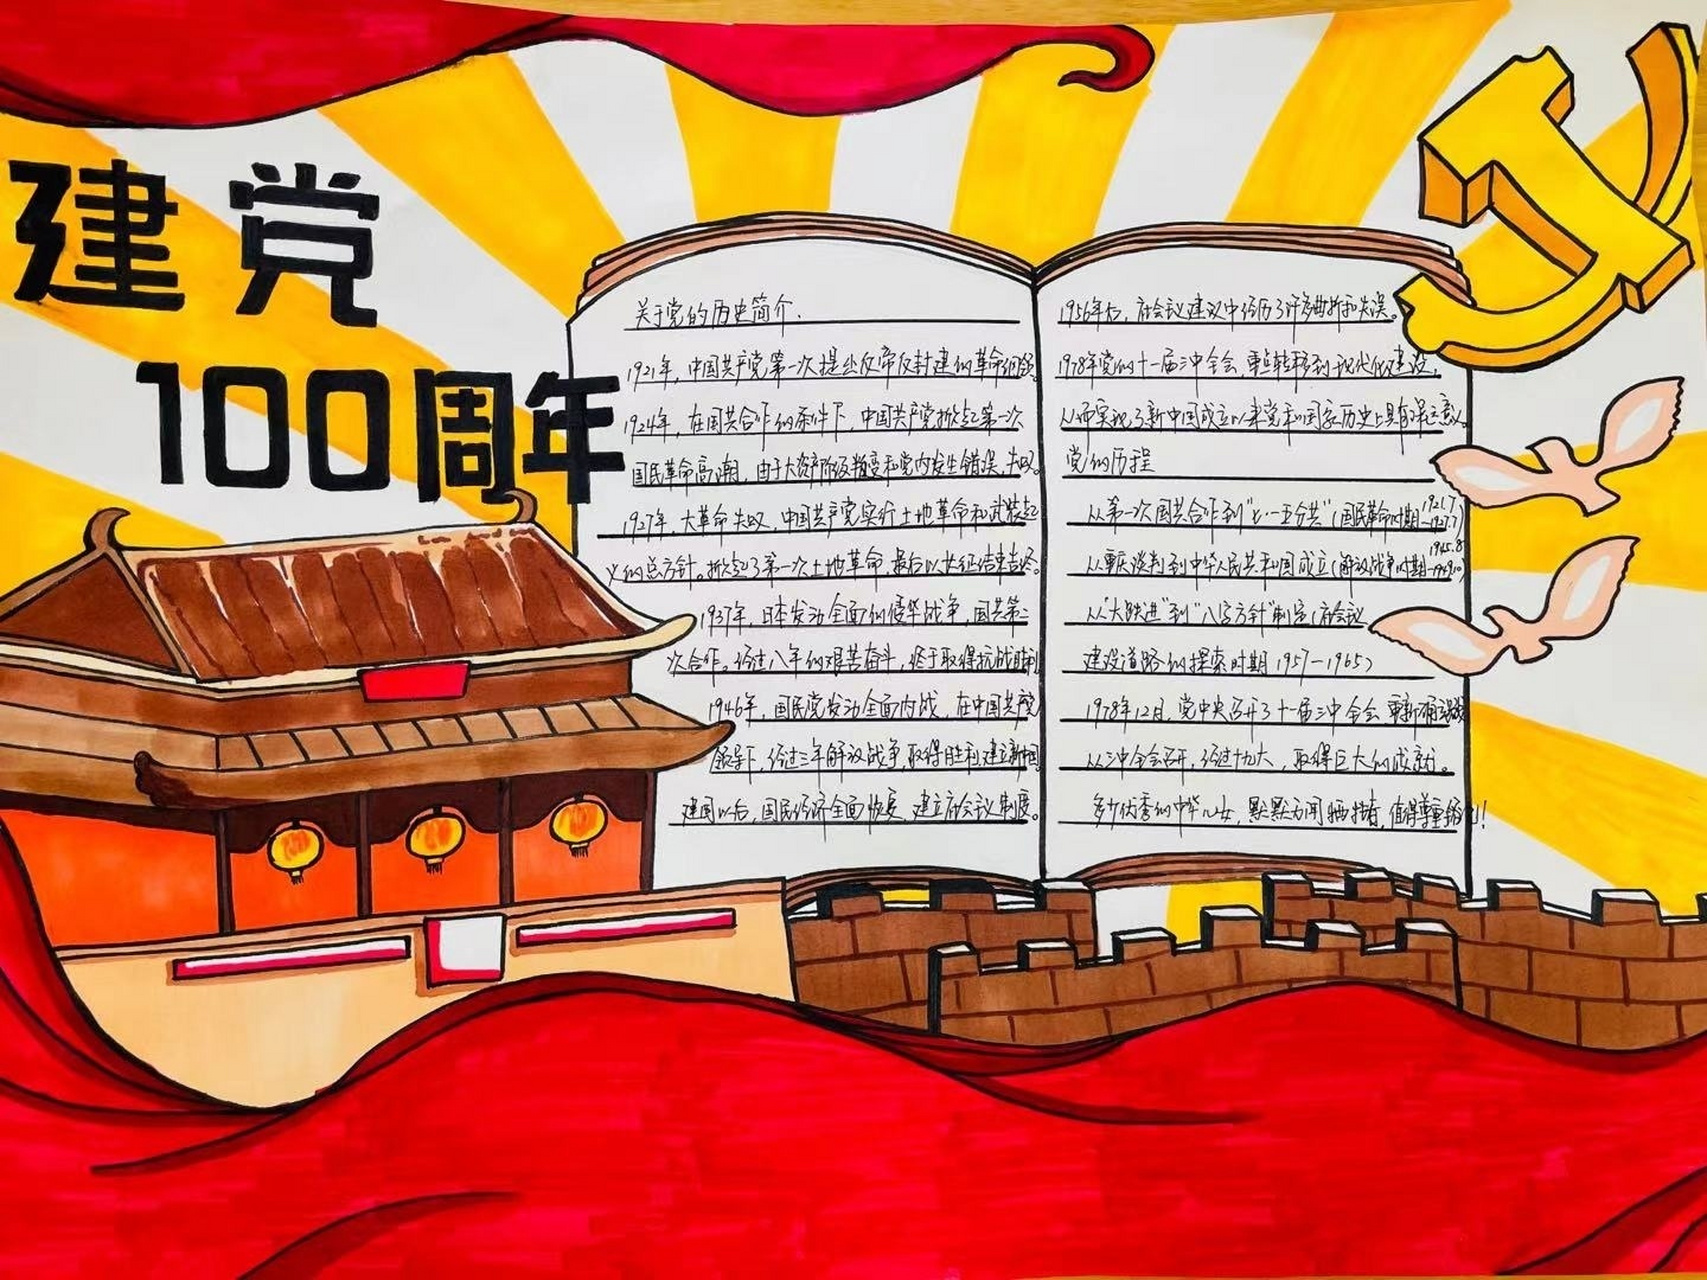 建党
100周年
关于党的历史简介.
1921年，中国共产党第一次提出反帝反封建的革命纲领
1924年，在国共合作的条件下，中国共产党掀起第一次
国民革命高潮，由于大资产阶级叛变和党内发生错误，失败。
1927年，大革命失败，中国共产党实行土地革命和武装起
义的总方针。掀起了第一次土地革命，最后以长征结束
1937年，日本发动全面的侵华战争，国共第二
次合作。经过八年的艰苦奋斗，终于取得抗战胜利
1946年，国民党发动全面内战，在中国共产党
领导下，经过三年解放战争，取得胜利建立新中国。
建国以后，国民经济全面恢复，建立府会议制度。
1956年后，府会议建议中经历了许多曲折和失误。
1978年党的十一届三中全会，重点转移到现代化建设，
从而实现了新中国成立以来党和国家历史上具有深
党的历程
从第一次国共合作到"七·一五分共"(国民革命时期1921.7~1927.7)
从重庆谈判到中华人民共和国成立(解放战争时期1945.8
从"大跃进"到"八字方针"制定(府会议
建设道路的探索时期1957-1965)
1978年12月，党中央召开了十一届三中全会 重新确
从三中全会召开，经过十九大，取得巨大的成就。
多少优秀的中华儿女，默默无闻牺牲着，值得尊重